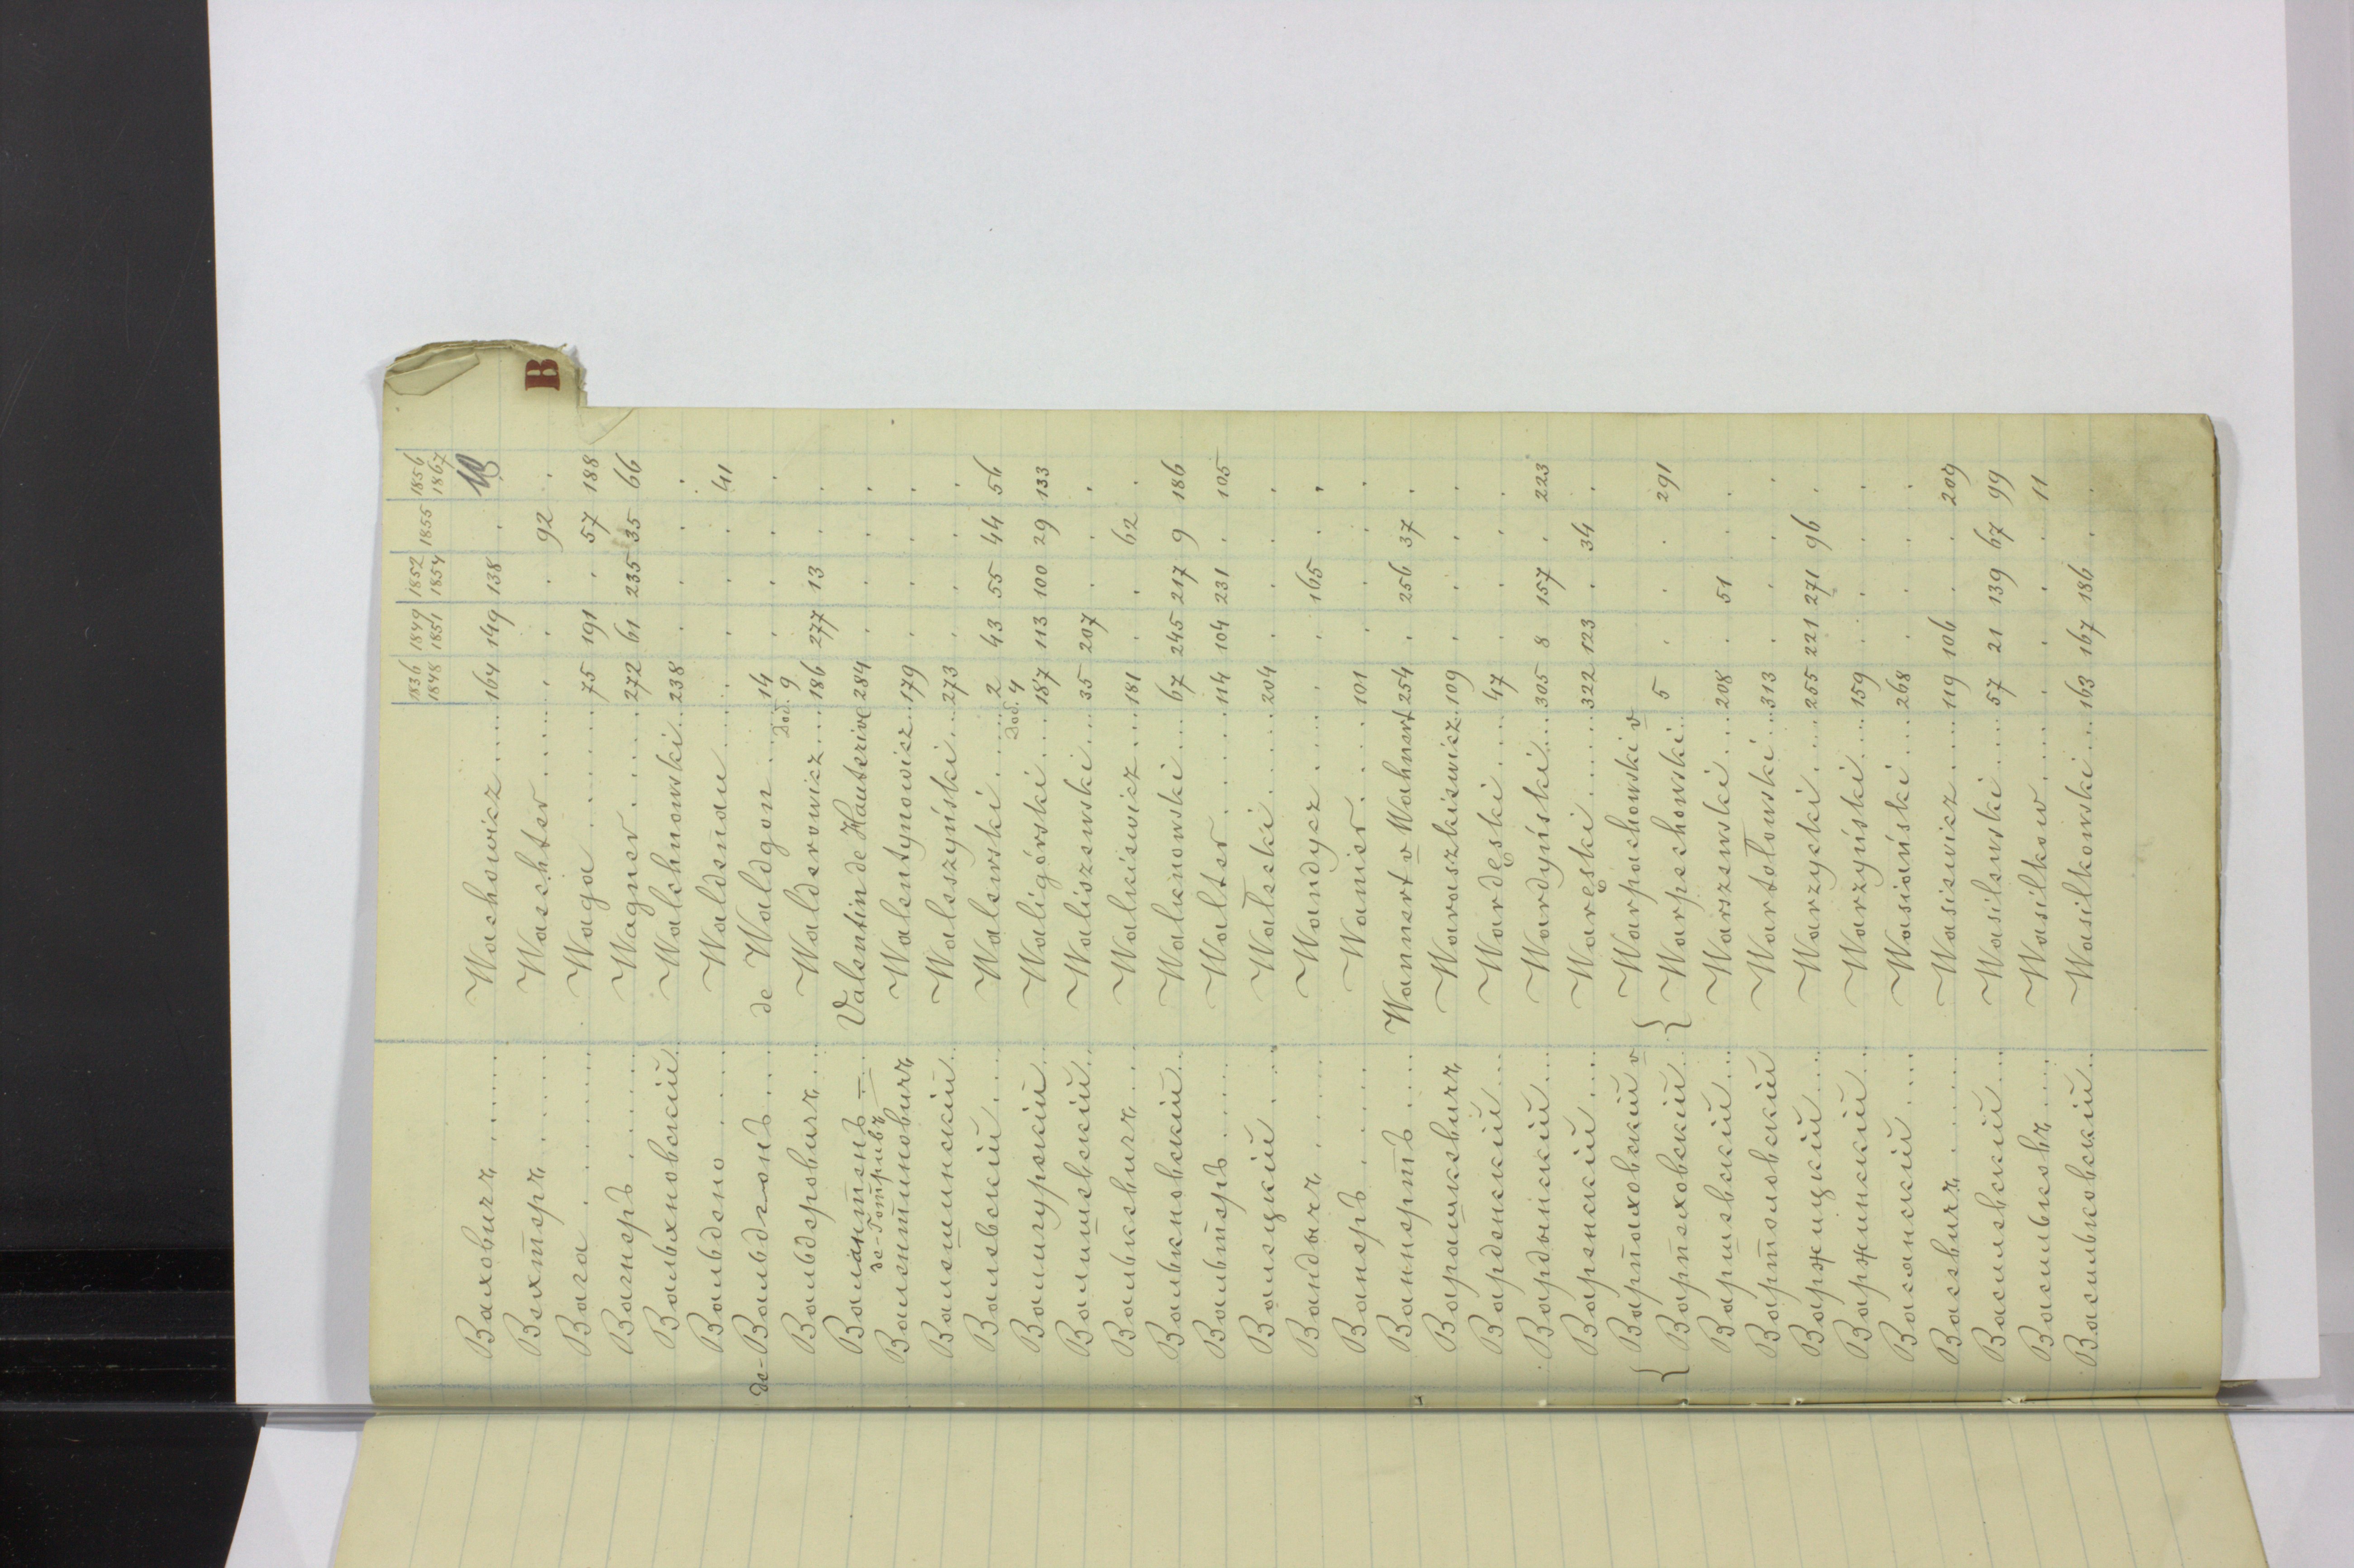 В
1836 1848 | 1849 1851 | 1852 1854 | 1855 | 1856 1867
Вахович ..... Wachowicz .... 164 149 138 . .
Вехтер ..... Waechter ..... . . . 92 .
Вага ...... Waga ...... 75 191 . 57 188
Вагнеръ ..... Wagner ..... 272 61 235 35 66
Вальхновский .. Walchnowski .. 238 . . . .
Вальдено .... Waldenau .... . . . . 41
де-Вальдгонъ ... de Waldgon .... 14 . . . .
Dod. 9
Вальдерович ... Walderowicz ... 186 277 13 . .
Валантенъ = Valentin de Hauterive 284 . . .
де-Готрив
Валентинович Walentynowicz .. 179 . . .
Валешинский .. Waleszyński ... 273 . . .
Валевский .... Walewski .... 2 43 55 44 56
Dod. 4
Валигурский .. Waligórski .... 187 113 100 29 133
Валишевский .. Waliszewski ... 35 207 . . .
Валькевич .... Walkiewicz .... 181 . . 62 .
Валькновский .. Walknowski ... 67 245 217 9 186
Вальтеръ .... Walter ..... 114 104 231 . 105
Валецкий .... Wałecki ..... 204 . . . .
Вандыч ..... Wandycz ..... . . 165 . .
Ванеръ ..... Wanier .... 101 . . .
Ваннертъ .... Wannert v Wahnert 254 . 256 37 .
Варашкевич Waraszkiewicz . 109 . . . .
Варденский ... Wardęski .... 47 . . . .
Вардынский ... Wardyński ... 305 8 157 . 223
Варенский .... Waręski ..... 322 123 . 34 .
{ Варпаховский v { Warpachowski v
{ Варпеховский .. { Warpechowski .. 5 . . . 291
Варшевский ... Warszewski ... 208 . 51 . .
Вартоловский Wartołowski ... 313 . . . .
Варжицкий ... Warzycki .... 255 221 271 96 .
Варжинский ... Warzyński .... 159 . . . .
Васанский .... Wasiański .... 268 . . . .
Васевич ..... Wasiewicz .... 119 106 . . 209
Василевский ... Wasilewski .... 57 21 139 67 99
Васильков .... Wasilkow ..... . . . . 11
Васильковский .. Wasilkowski ... 163 167 186 . .